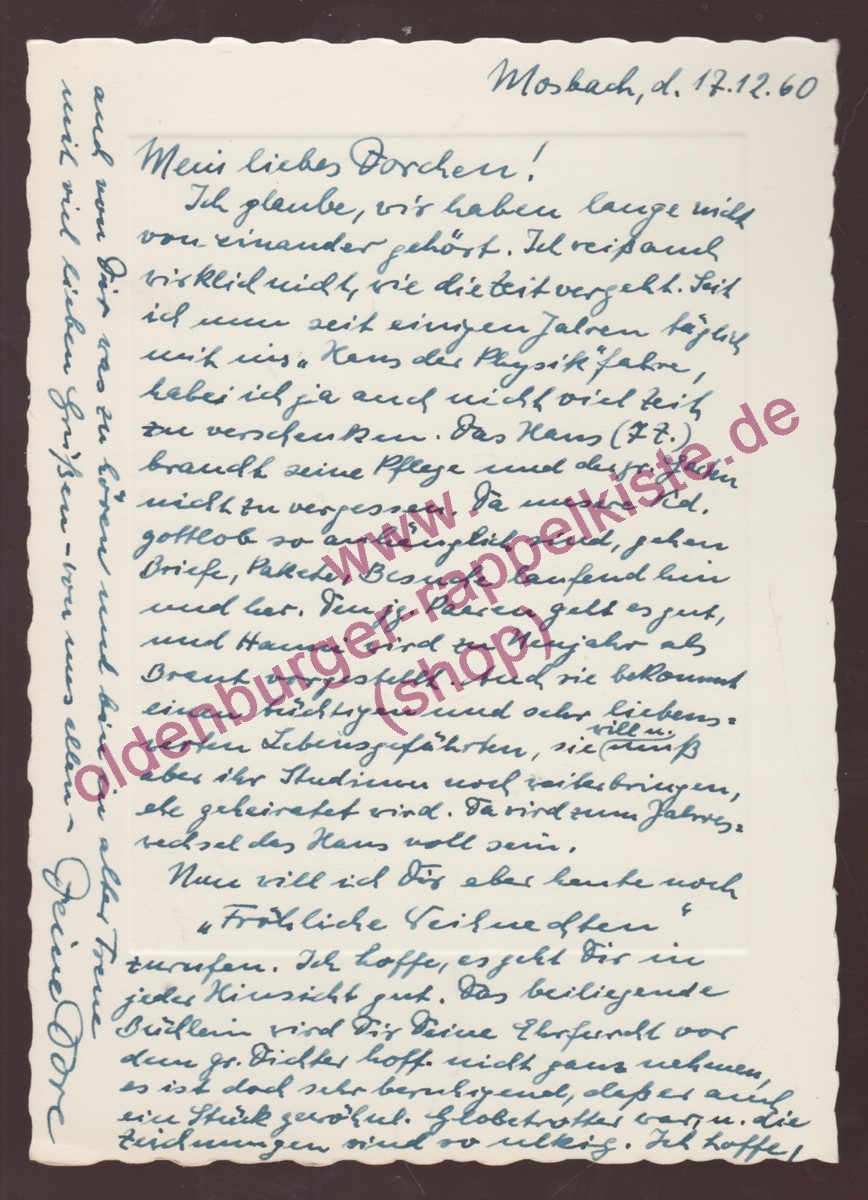 Mosbach, d. 17.12.60
Mein liebes Dorchen!
Ich glaube, wir haben lange nicht
von einander gehört. Ich weiß auch
wirklich nicht, wie die Zeit vergeht. Seit
ich nun seit einigen Jahren täglich
mit ins „Haus der Physik" fahre,
habe ich ja auch nicht viel Zeit
zu verschenken. Das Haus (7 Z.)
braucht seine Pflege und der gr. Garten
nicht zu vergessen. Da unsere Kd.
gottlob so anhänglich sind, gehen
Briefe, Pakete, Besuche laufend hin
und her. Den jg. Paaren geht es gut,
und Hanni wird zu Neujahr als
Braut vorgestellt. Auch sie bekommt
einen tüchtigen und sehr liebens=
werten Lebensgefährten, sie (will u. muß
aber ihr Studium noch weiterbringen,
ehe geheiratet wird. Da wird zum Jahres=
wechsel das Haus voll sein.
Nun will ich Dir aber heute noch
„Fröhliche Weihnachten"
zurufen. Ich hoffe, es geht Dir in
jeder Hinsicht gut. Das beiliegende
Büchlein wird Dir Deine Ehrfurcht vor
dem gr. Dichter hoff. nicht ganz nehmen,
es ist doch sehr beruhigend, daß er auch
ein Stück gewöhnl. Globetrotter war, u. die
Zeichnungen sind so ulkig. Ich hoffe,
auch von Dir was zu hören und bin in alter Treue
mit viel lieben Grüßen – von uns allen –
Deine Dore
www.
oldenburger-rappelkiste.de
(shop)